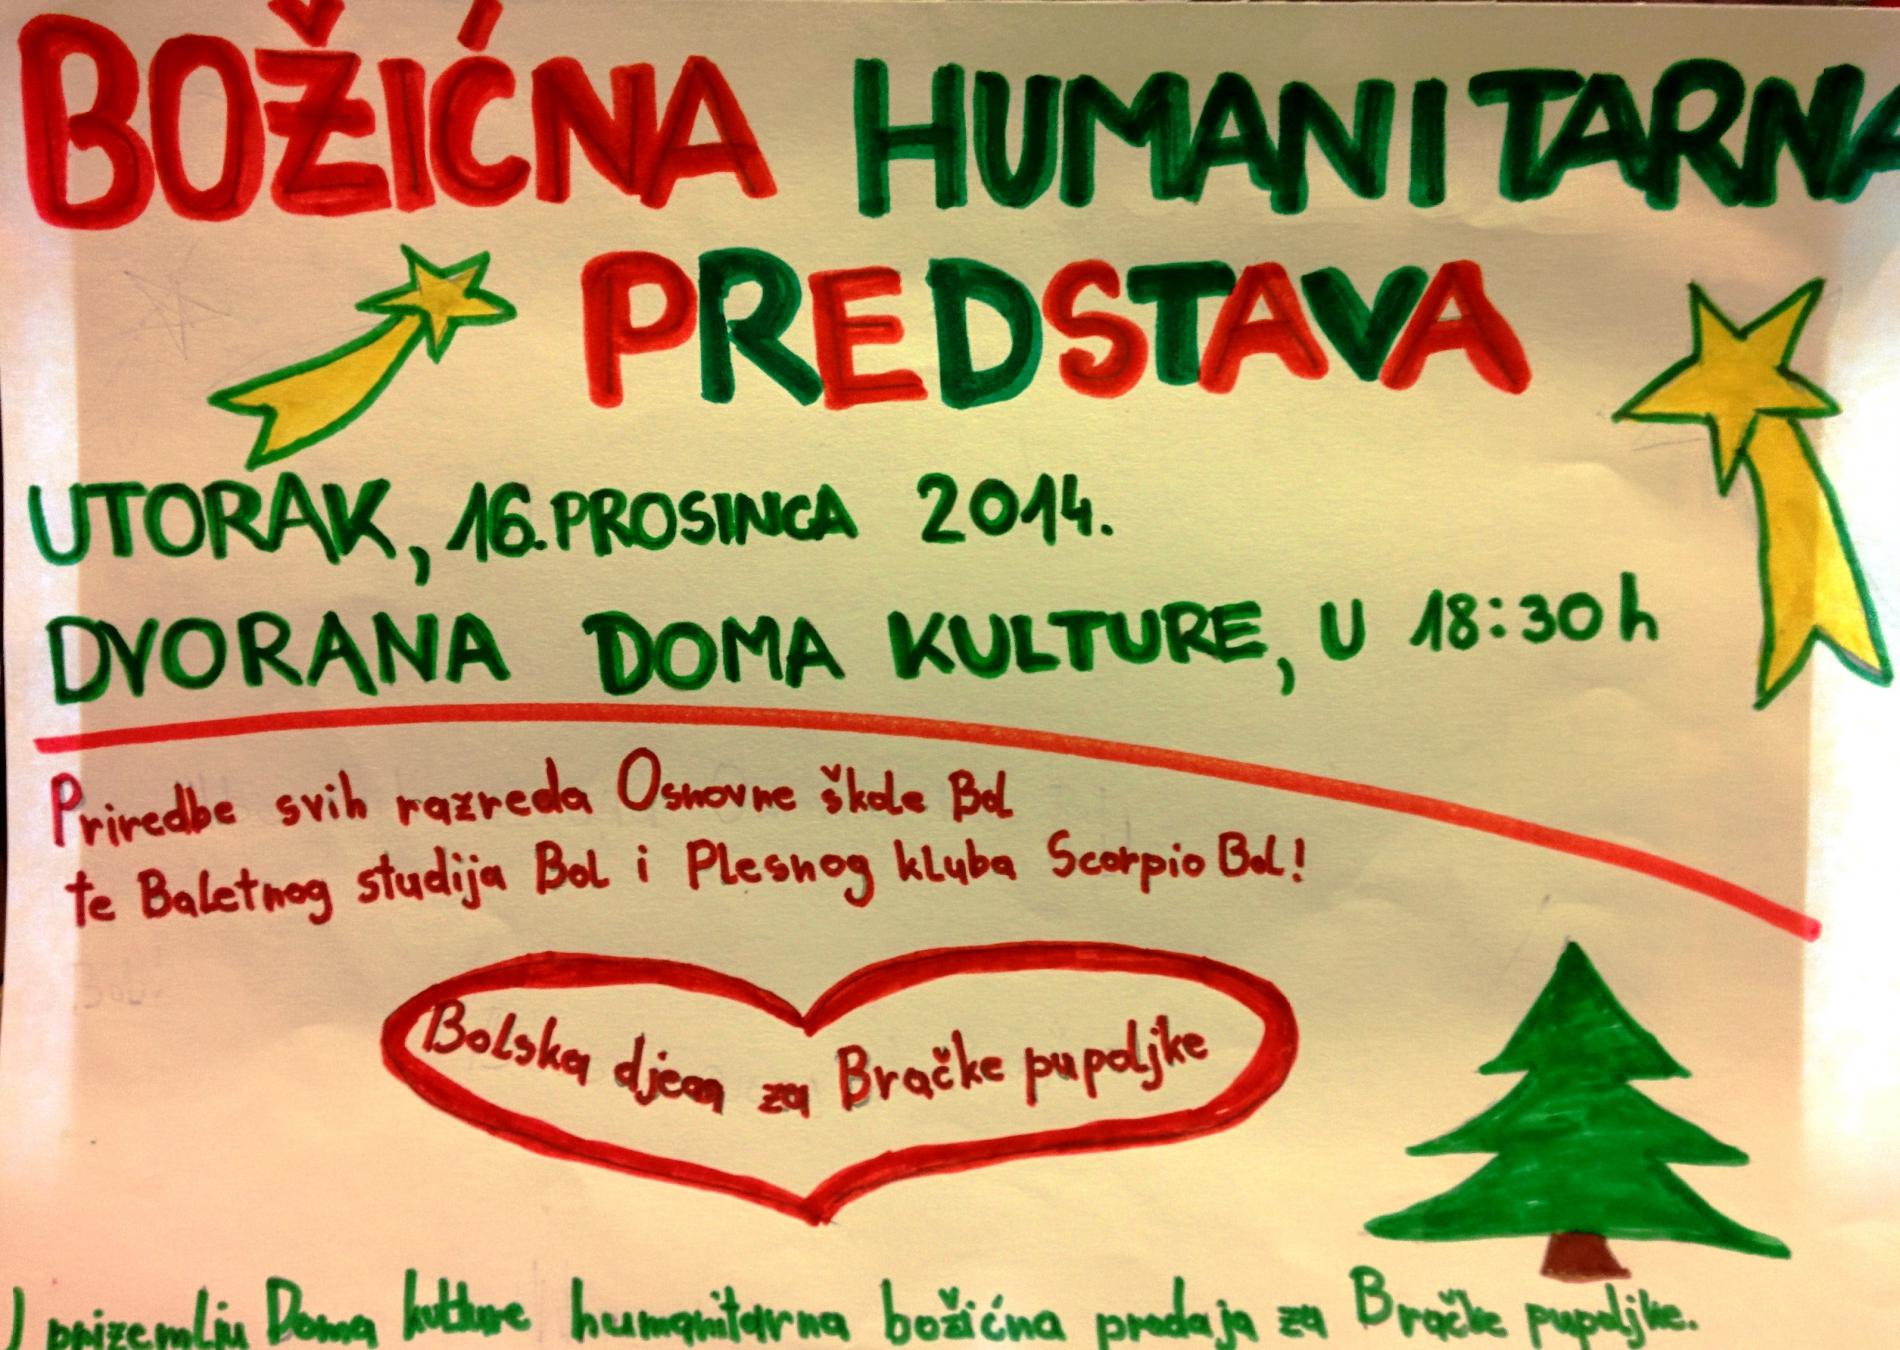 BOŽIĆNA HUMANITARNA
PREDSTAVA
UTORAK, 16. PROSINCA 2014.
DVORANA DOMA KULTURE, U 18:30 h
Priredbe svih razreda Osnovne škole Bol
te Baletnog studija Bol i Plesnog kluba Scorpio Bol!
Bolska djeca za Bračke pupoljke
U prizemlju Doma kulture humanitarna božićna prodaja za Bračke pupoljke.